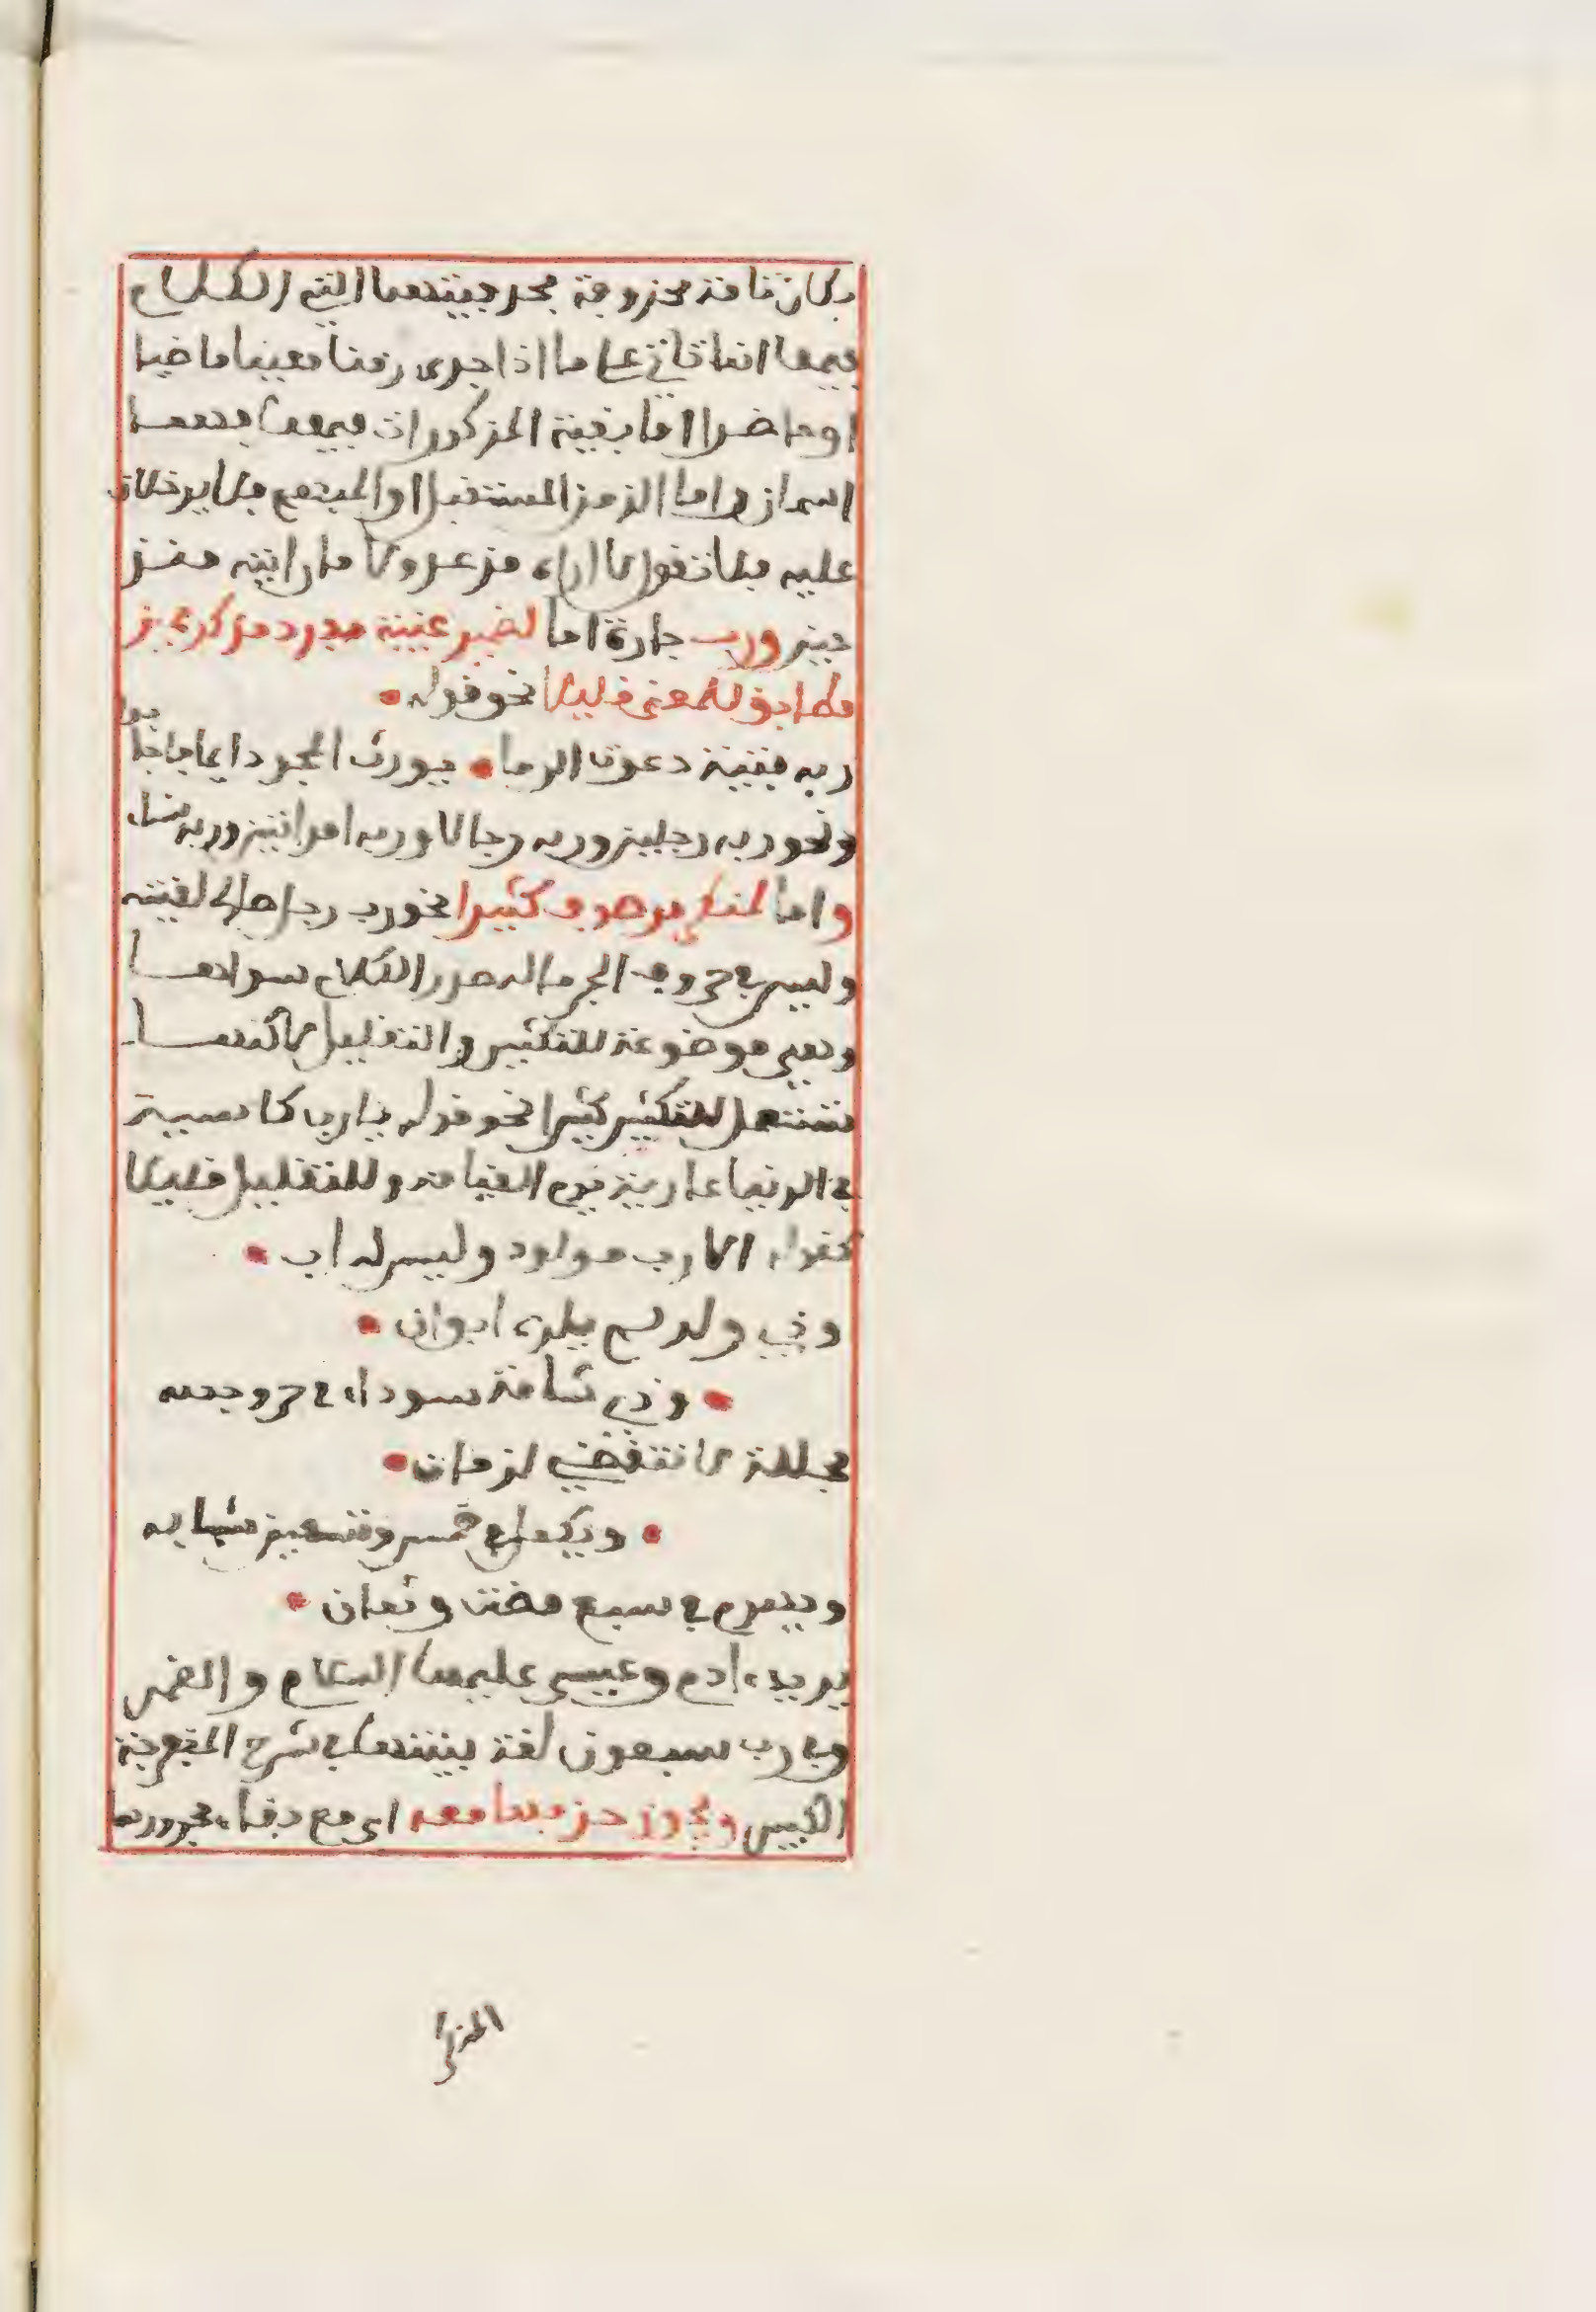 بكان تامة محذوفة مجر جيئتهما التي الكلام
فيهما انما تاتي على ما اذا جرى زمنا معينا ماضيا
او حاضرا اما بقية المذكورات فيهما فهما
اسمان واما الزمن المستقبل او المبهم فلا يدخلان
عليه فلا تقول لا اراه من غد ولا ما رايته منذ
حين ورب جارة اما لضمير غيبة مفرد مذكر مميز
مطابق للمعنى قليلا نحو قوله
ربه فتية دعوت الى ما يورث المجد دايما فاجابوا
ونحو ربه رجلين وربه رجالا وربه امراتين وربه نساء
واما لمنكر موصوف كثيرا نحو رب رجل صالح لقيته
وليس في حروف الجر ماله صدر الكلام سواها
وهي موضوعة للتكثير والتقليل لاكنها
تستعمل للتكثير كثيرا نحو قوله يا رب كاسية
في الدنيا عارية يوم القيامة وللتقليل قليلا
كقوله الا رب مولود وليس له اب
وذي ولد لم يلده ابوان
وذي شامة سوداء في حر وجهه
مجللة لا تنقضي لزمان
ويكمل في خمس وتسعين شبابه
ويهرم في سبع مضت وثمان
يريد ءادم وعيسى عليهما السلام والقمر
وفي رب سبعون لغة بينتها في شرح المقدمة
الكبير ويجوز حذفها معه اي مع بقاء مجرورها